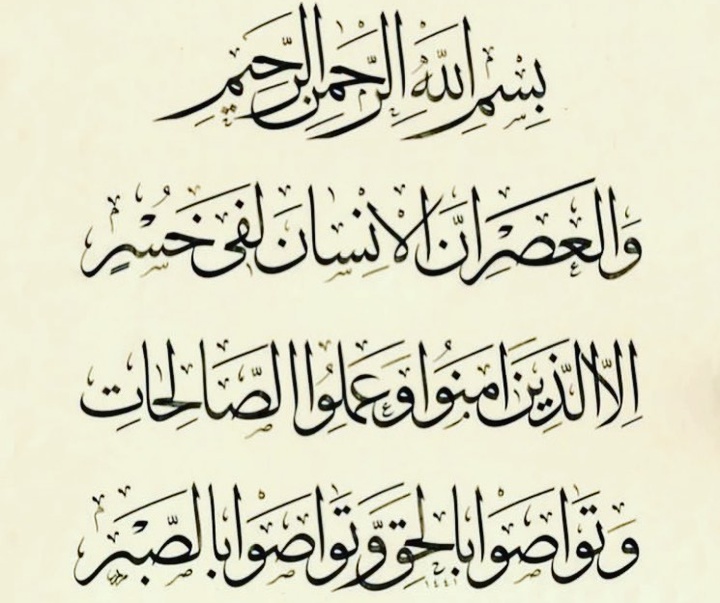 بِسْمِ اللَّهِ الرَّحْمٰنِ الرَّحِيمِ
وَالْعَصْرِ اِنَّ الْاِنْسَانَ لَفِى خُسْرٍ
اِلَّا الَّذِينَ اٰمَنُوا وَعَمِلُوا الصَّالِحَاتِ
وَتَوَاصَوْا بِالْحَقِّ وَتَوَاصَوْا بِالصَّبْرِ
١٤٤١